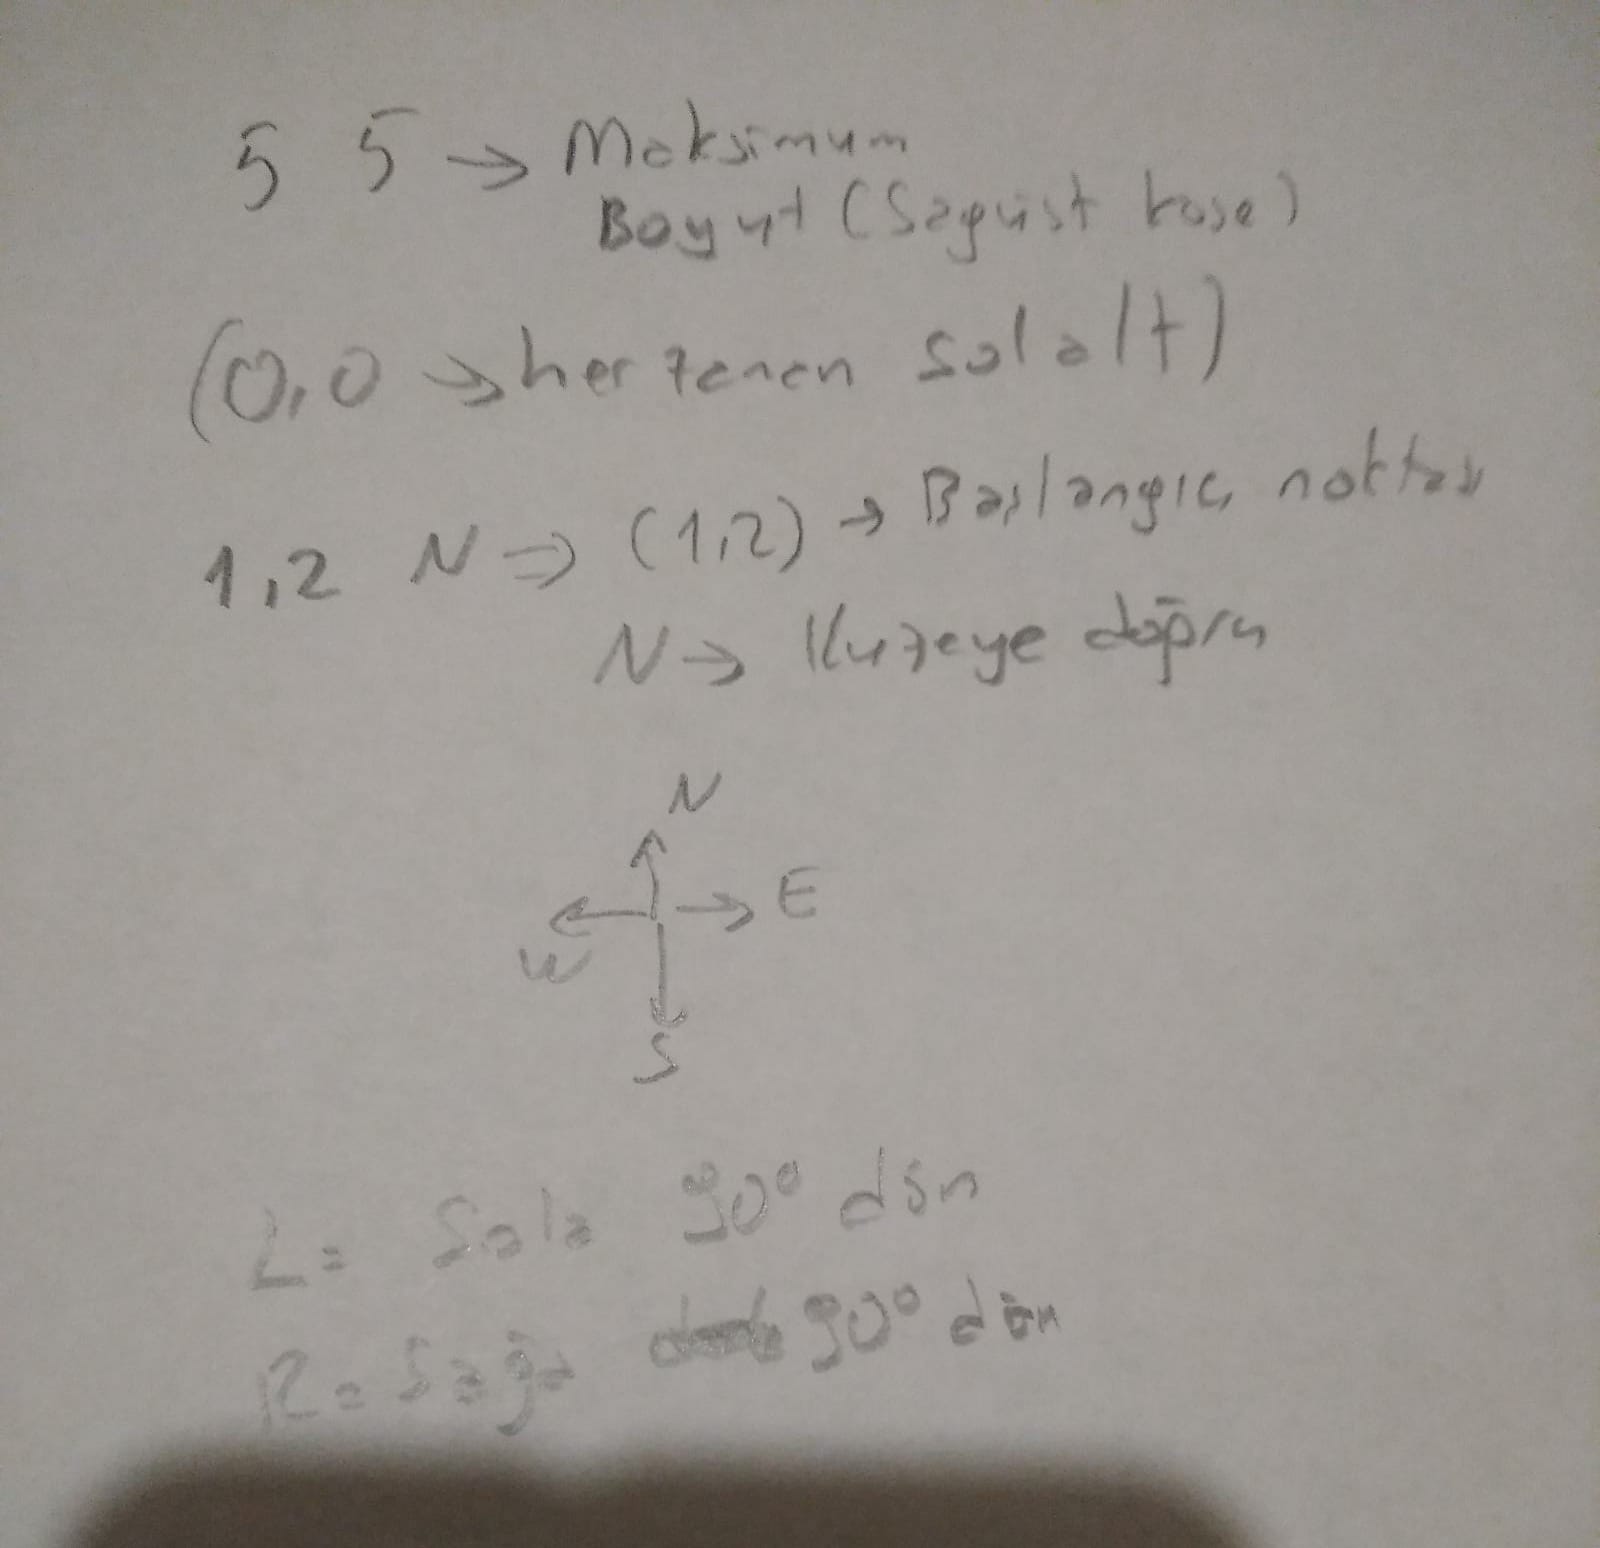 5 5 → Maksimum
Boyut (Sağüst köse)
(0,0 → her zaman sol alt)
1,2 N ⇒ (1,2) → Başlangıç noktası
N → Kuzeye doğru
N
W E
S
L = Sola 90° dön
R = Sağa 90° dön